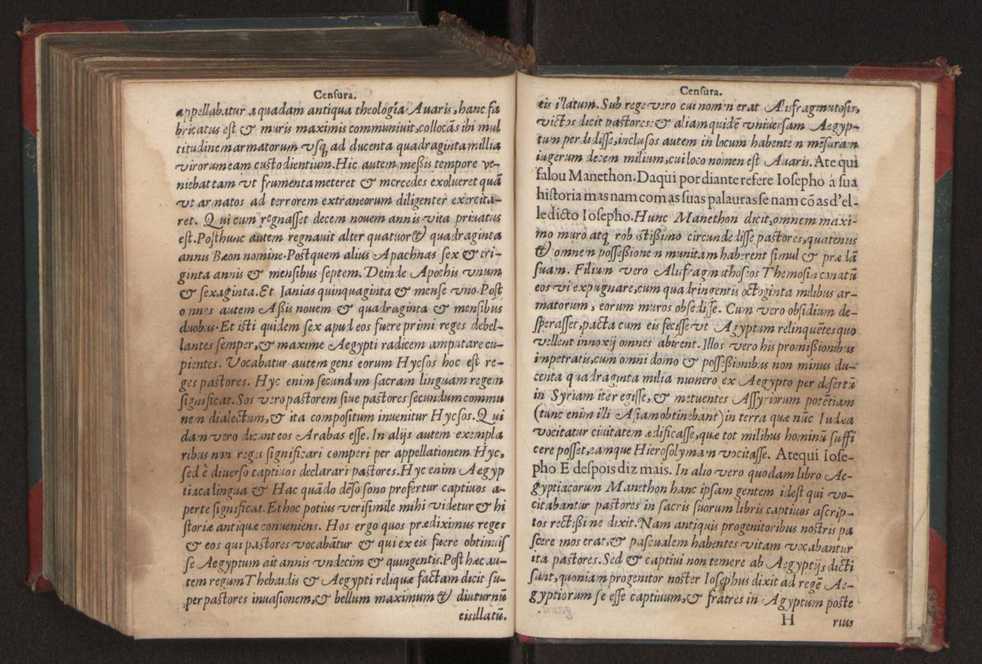 Censura.
appellabatur a quadam antiqua theologia Auaris, hanc fa
bricatus est & muris maximis communiuit, collocãs ibi mul
titudinem armatorum vsq, ad ducenta quadraginta millia
virorum eam custodientium. Hic autem messis tempore ve-
niebat tam vt frumenta meteret & mercedes exolueret quã
vt armatos ad terrorem extraneorum diligenter exercita-
ret. Qui cum regnasset decem nouem annis vita priuatus
est. Post hunc autem regnauit alter quatuor & quadraginta
annis Bæon nomine. Postquem alius Apachnas sex & tri-
ginta annis & mensibus septem. Deinde Apochis vnum
& sexaginta. Et Ianias quinquaginta & mense vno. Post
omnes autem Aßis nouem & quadraginta & mensibus
duobus. Et isti quidem sex apud eos fuere primi reges debel-
lantes semper, & maxime Aegypti radicem amputare cu-
pientes. Vocabatur autem gens eorum Hycsos hoc est re-
ges pastores. Hyc enim secundum sacram linguam regem
significat. Sos vero pastorem siue pastores secundum commu
nem dialectum, & ita compositum inuenitur Hycsos. Qui
dam vero dicunt eos Arabas esse. In alijs autem exempla
ribus non reges significari comperi per appellationem Hyc,
sed è diuerso captiuos declarari pastores. Hyc enim Aegyp
tiaca lingua & Hac quãdo dẽso sono profertur captiuos a-
perte significat. Et hoc potius verisimile mihi videtur & hi
storiæ antiquæ conueniens. Hos ergo quos prædiximus reges
& eos qus pastores vocabãtur & qui ex eis fuere obtinuis
se Aegyptum ait annis vndecim & quingentis. Post hæc au-
tem regum Thebaidis & Aegypti reliquæ factam dicit su-
per pastores inuasionem, & bellum maximum & diuturniũ
eisillatũ.
Censura.
eis illatum. Sub rege vero cui nomen erat Alisfragmutosis,
victos dicit pastores: & aliam quidẽ vniuersam Aegyp-
tum perdidisse, inclusos autem in locum habentem mẽsuram
iugerum decem milium, cui loco nomen est Auaris. Ate qui
falou Manethon. Daqui por diante refere Iosepho á sua
historia mas nam com as suas palauras se nam cõ as d'el-
le dicto Iosepho. Hunc Manethon dicit, omnem maxi-
mo muro atq, robustißimo circundedisse pastores, quatenus
& omnem possessionem munitam haberent simul & prædã
suam. Filium vero Alisfragmuthosios Themosia conatũ
eos vi expugnare, cum quadringentis octoginta milibus ar-
matorum, eorum muros obsedisse. Cum vero obsidium de-
sperasset, pacta cum eis fecisse vt Aegyptum relinquẽtes quo
vellent innoxij omnes abirent. Illos vero his promißionibus
impetratis, cum omni domo & possessionibus non minus du-
centa quadraginta milia numero ex Aegypto per desertũ
in Syriam iter egisse, & metuentes Assyriorum potẽtiam
(tunc enim illi Asiam obtinebant) in terra que nũc Iudea
vocitatur ciuitatem ædificasse, que tot milibus hominũ suffi
cere posset, eamque Hierosolymam vocitasse. Atequi Iose-
pho E despois diz mais. In alio vero quodam libro Ae-
gyptiacorum Manethon hanc ipsam gentem idest qui vo-
citabantur pastores in sacris suorum libris captiuos ascrip-
tos rectißime dixit. Nam antiquis progenitoribus nostris pa
scere mos erat, & pascualem habentes vitam vocabantur
ita pastores. Sed & captiui non temere ab Aegyptijs dicti
sunt, quoniam progenitor noster Iosephus dixit ad regẽ Ae-
gyptiorum se esse captiuum, & fratres in Aegyptum poste
H rius